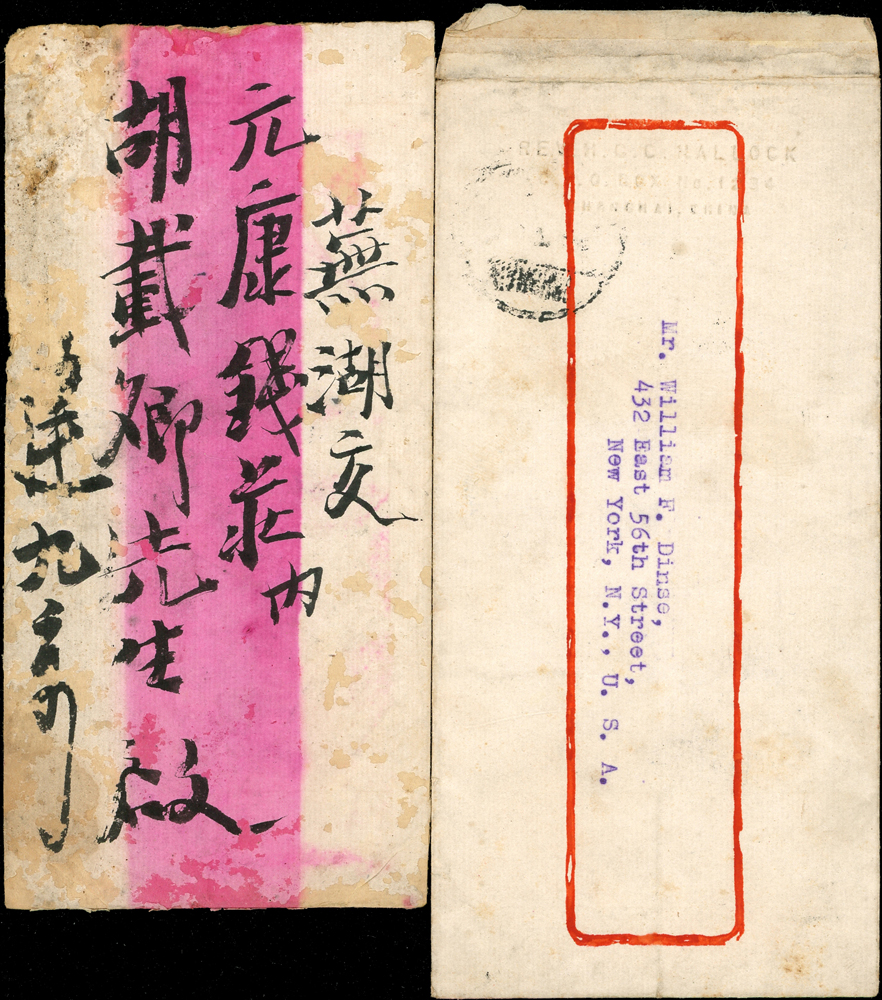 蕪湖交
元康錢莊內
胡載卿先生啟
REV. H. G. C. HALLOCK
SHANGHAI, CHINA
Mr. William F. Dinse,
432 East 56th Street,
New York, N.Y., U. S. A.